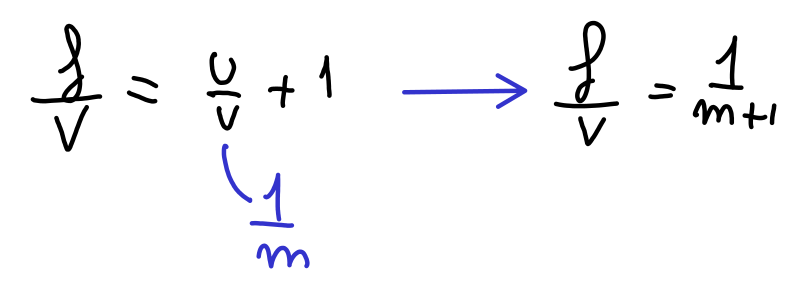 f/v = u/v + 1 → f/v = 1/m+1
1/m